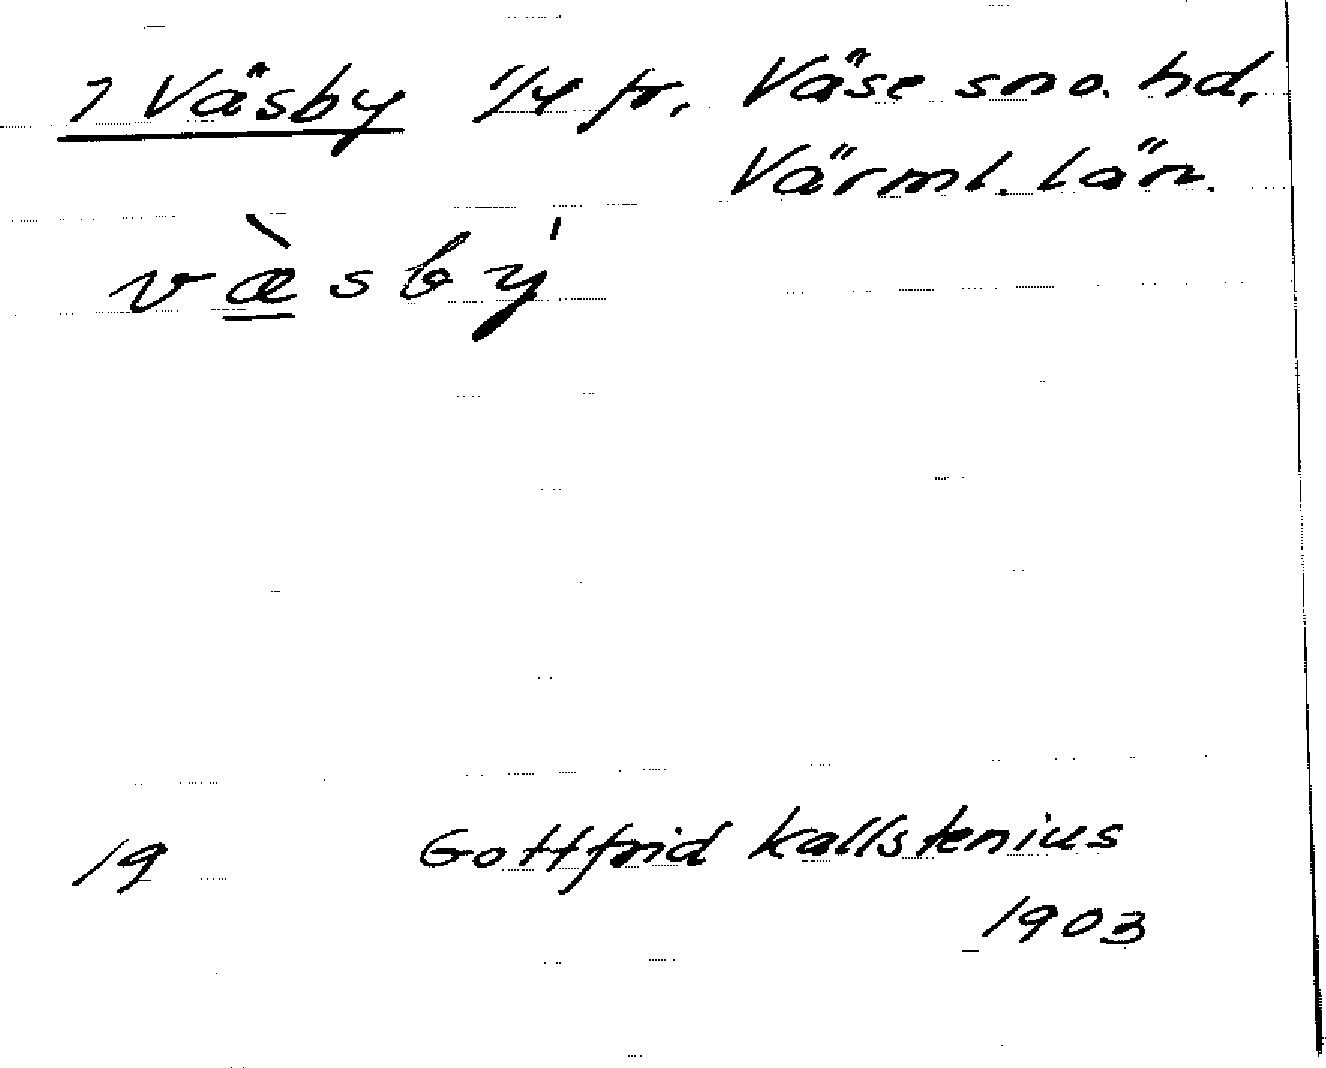 1 Väsby 1/4 fr, Väse sn o. hd,
Värml. län.
væ̀sby'
19 Gottfrid Kallstenius
1903